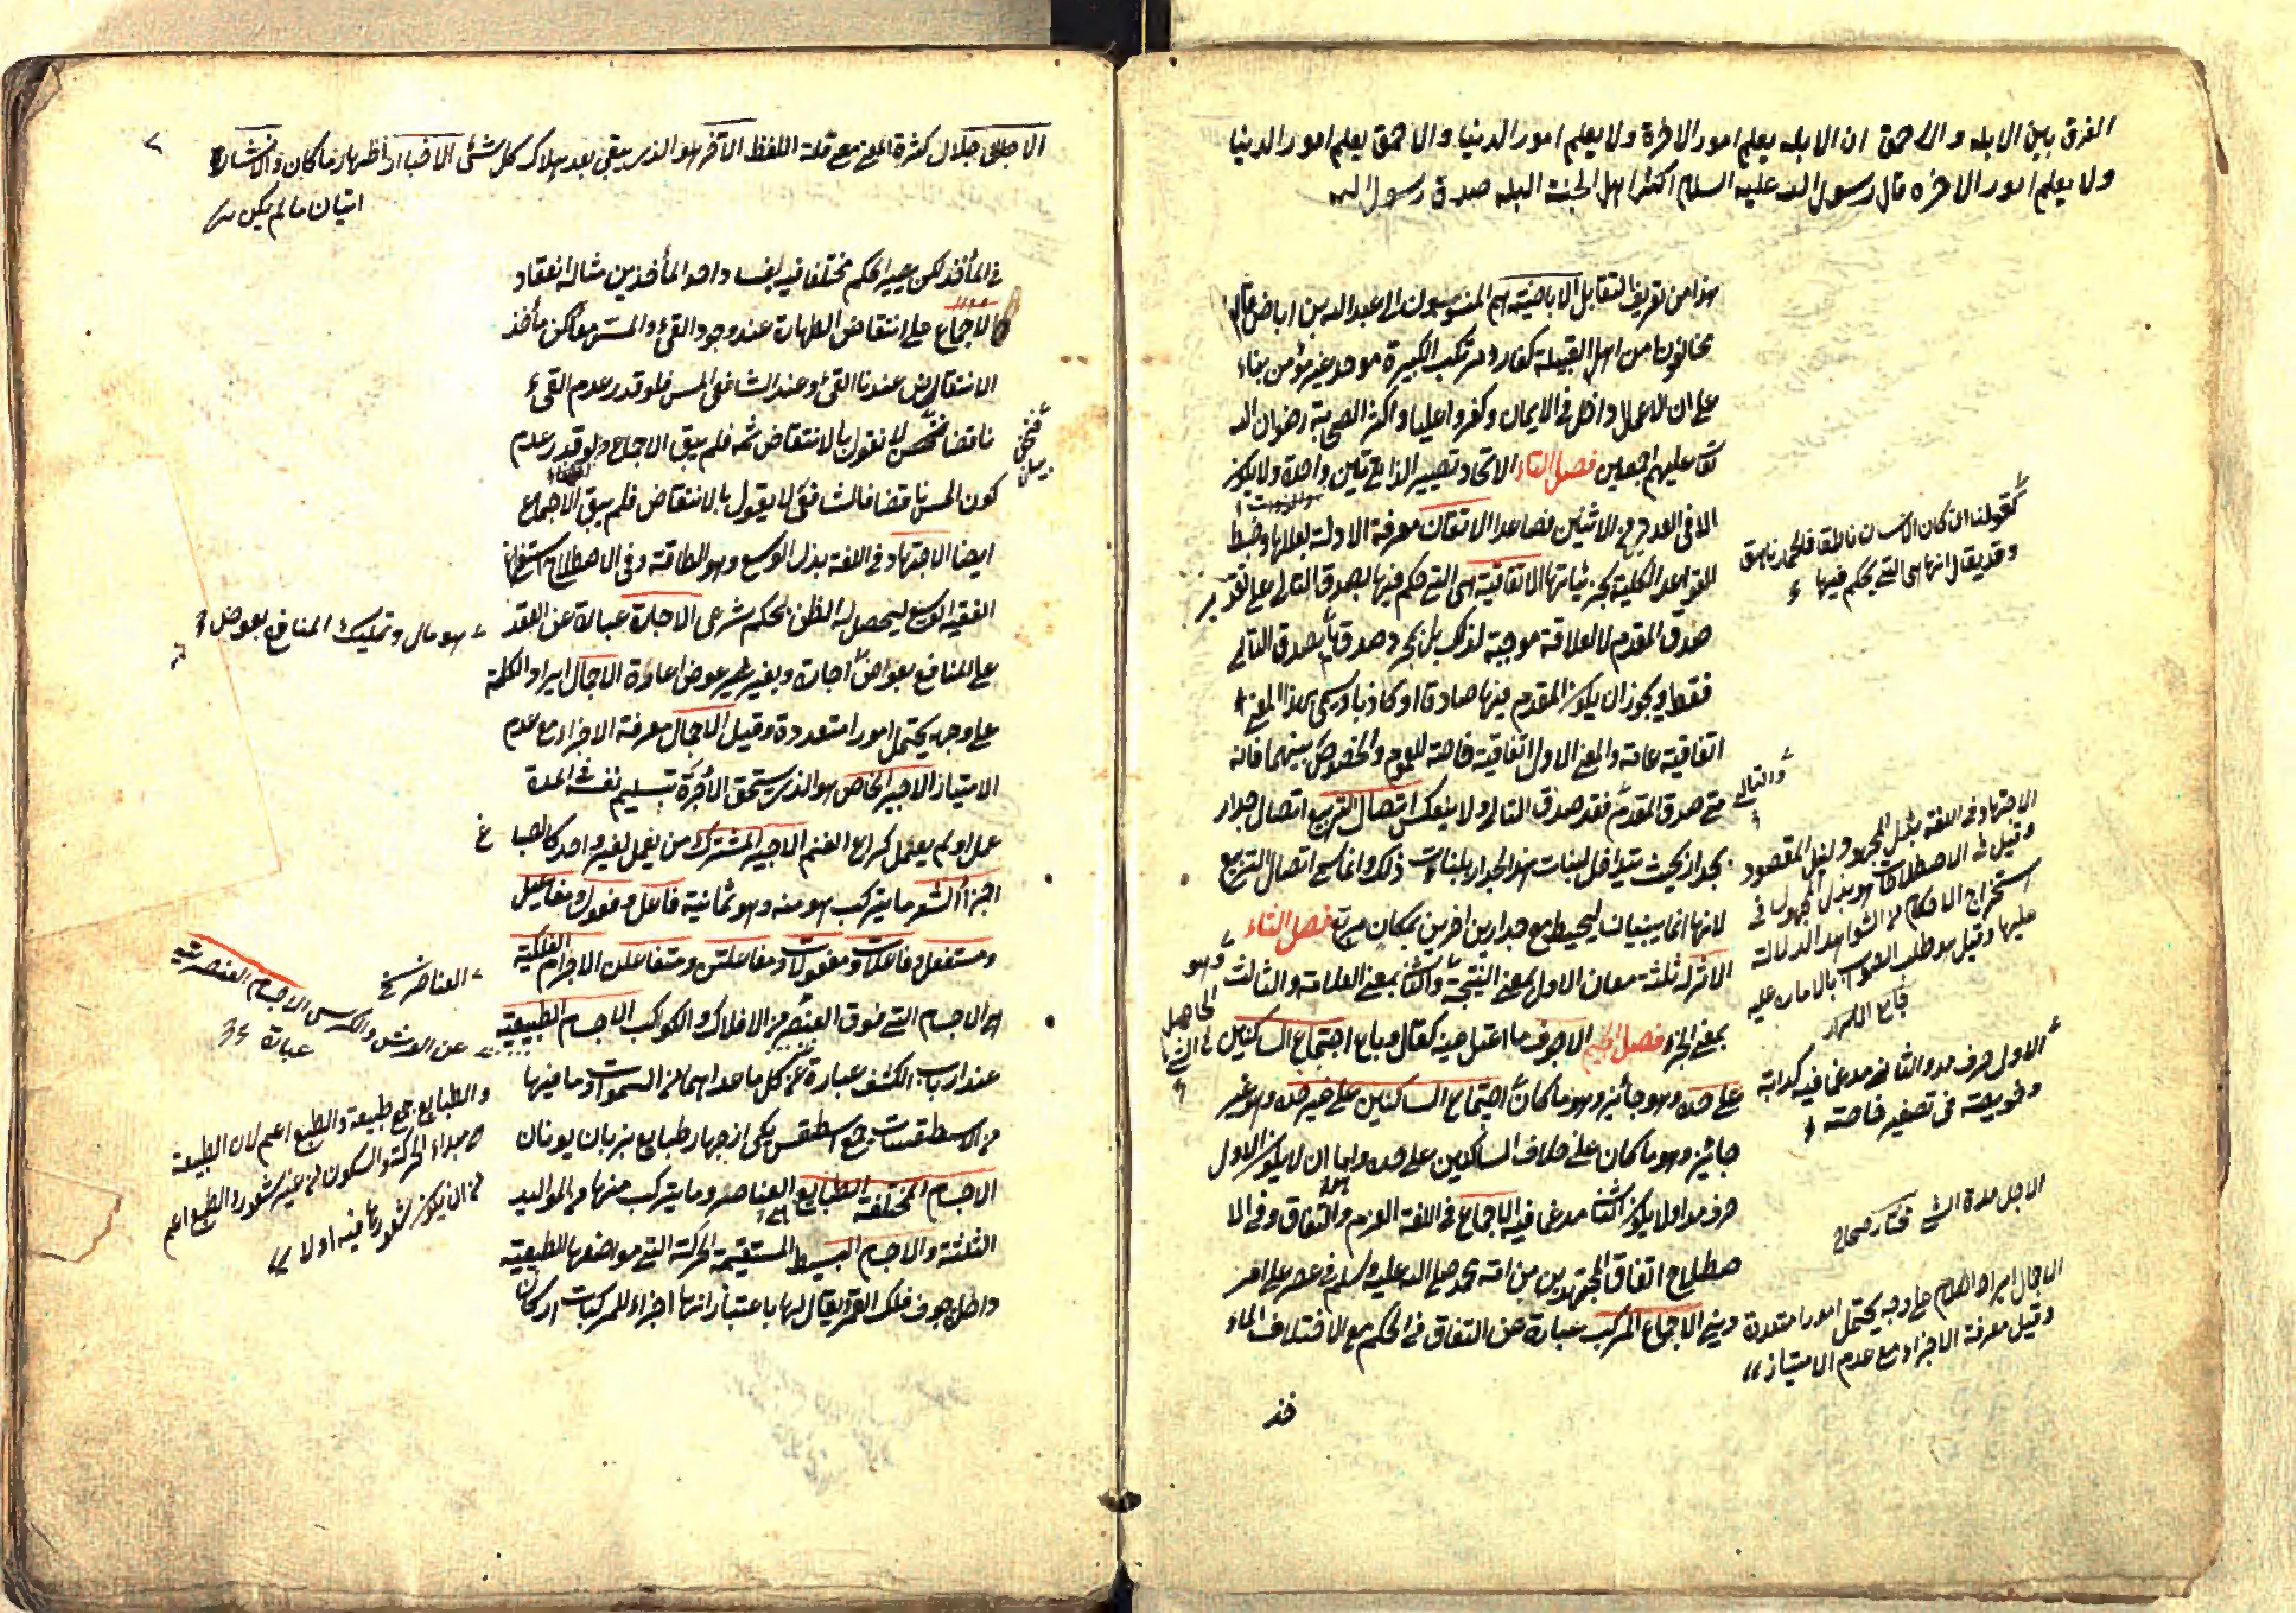 الفرق بين الابله والاحمق ان الابله يعلم امور الاخرة ولا يعلم امور الدنيا والاحمق يعلم امور الدنيا
ولا يعلم امور الاخره قال رسول الله عليه السلام اكثر اهل الجنة البله صدق رسول الله
هذا من تعريف التقابل الاباضية هم المنسوبون الى عبد الله بن اباض قالوا
مخالفونا من اهل القبلة كفار ومرتكب الكبيرة موحد غير مؤمن بناء
على ان الاعمال داخل في الايمان وكفروا عليا واكثر الصحابة رضوان الله
تعا عليهم اجمعين فصل التاء الاتحاد تصيير الذاتين واحدة ولا يكون
الا في العدد من الاثنين فصاعدا الاتقان معرفة الادلة بعللها وضبط
القواعد الكلية بجزئياتها الاتفاقية هي التي حكم فيها بصدق التالي على تقدير
صدق المقدم لا لعلاقة موجبة لذلك بل بمجرد صدقهما بصدق التالي
فقط ويجوز ان يكون المقدم فيها صادقا او كاذبا ويسمى بهذا المعنى
اتفاقية عامة والمعنى الاول اتفاقية خاصة للعموم والخصوص بينهما فانه
متى صدق المقدم فقد صدق التالي ولا ينعكس اتصال التربيع اتصال جدار
بجدار بحيث يتداخل لبنات هذا الجدار بلبنات ذلك وانما سمى اتصال التربيع
لانهما انما يبنيان ليحيط مع جدارين اخرين بمكان مربع فصل الثاء
الاثر له ثلثة معان الاول بمعنى النتيجة والثا بمعنى العلامة والثالث
بمعنى الجزء فصل الجيم الاجوف ما اعتل عينه كقال وباع اجتماع الساكنين
على حده وهو جائز وهو ما كان اجتماع الساكنين على غير حده وهو غير
جائز وهو ما كان على خلاف الساكنين على حده واما ان لا يكون الاول
حرف مد او لا يكون الثا مدغما فيه الاجماع في اللغة العزم والاتفاق وفي الا
صطلاح اتفاق المجتهدين من امة محمد صلى الله عليه وسلم في عصر على امر
ديني الاجماع المركب عبارة عن اتفاق في الحكم مع الاختلاف الماء
خذ
كقولنا ان كان الانسان ناطقا فالحمار ناهق
وقد يقال انها هي التي يحكم فيها
والتالي
الاجتهاد في اللغة بذل المجهود لنيل المقصود
وقيل في الاصطلاحات هو بذل المجهود في
استخراج الاحكام من الشواهد الدالة
عليها وقيل هو طلب الصواب بالامارة عليه
وهو
الحاصل
الاول حرف مد والثاني مدغما فيه كدابة
وخويصة في تصغير خاصة
الاجل مدة الشئ مختار صحاح
الاجمال ايراد الكلام على وجه يحتمل امورا متعددة
وقيل معرفة الاجزاء مع عدم الامتياز
الاجلى جلال كثرة المعنى مع قلة اللفظ الآخر هو الذي يبقى بعد هلاك كل شئ الاخبار اظهار ما كان والانشاء
اتيان ما لم يكن
في المأخذ لكن يصير الحكم مختلفا فيه بفساد احد المأخذين مثاله انعقاد
الاجماع على انتقاض الطهارة عند وجود القئ والمس معا لكن مأخذ
الانتقاض عندنا القئ وعند الشافعى المس فلو قدر عدم القئ
ناقضا فنحن لا نقول بالانتقاض ثمه فلم يبق الاجماع ولو قدر عدم
كون المس ناقضا فالشافعى لا يقول بالانتقاض فلم يبق الاجماع
ايضا الاجتهاد في اللغة بذل الوسع وهو الطاقة وفي الاصطلاح استفراغ
الفقيه الوسع ليحصل له الظن بحكم شرعى الاجارة عبارة عن العقد
على المنافع بعوض اجارة وبغير عوض اعارة الاجمال ايراد الكلمة
على وجه يحتمل امورا متعددة وقيل الاجمال معرفة الاجزاء مع عدم
الامتياز الاجير الخاص هو الذي يستحق الأجرة بتسليم نفسه في المدة
عمل او لم يعمل كراع الغنم الاجير المشترك من يعمل لغير واحد كالصباغ
اجزاء الشعر ما يتركب هو منه وهو ثمانية فاعلن وفعولن ومفاعيلن
ومستفعلن وفاعلات ومفعولات ومفاعلتن ومتفاعلن الاجرام الفلكية
الاجسام التي فوق العنصر من الافلاك والكواكب الاجسام الطبيعية
عند ارباب الكشف عبارة عن كل ما عداهما من السموات وما فيها
من الاسطقسات جمع اسطقس يكى از چهار طبايع بزبان يونان
الاجسام المختلفة الطبايع العناصر وما يتركب منها من المواليد
الثلثة والاجسام البسيط المستقيمة الحركة التي مواضعها الطبيعية
داخل جوف فلك القمر ويقال لها باعتبار انها اجزاء للمركبات اركان
فنحن
هو مال وتمليك المنافع بعوض
العناصر
عن العرش والكرسي الاجسام العنصرية
عبارة
والطبايع جمع طبيعة والطبع اعم لان الطبيعة
مبداء الحركة والسكون من غير شعور والطبع اعم
من ان يكون شعور ما فيه اولا